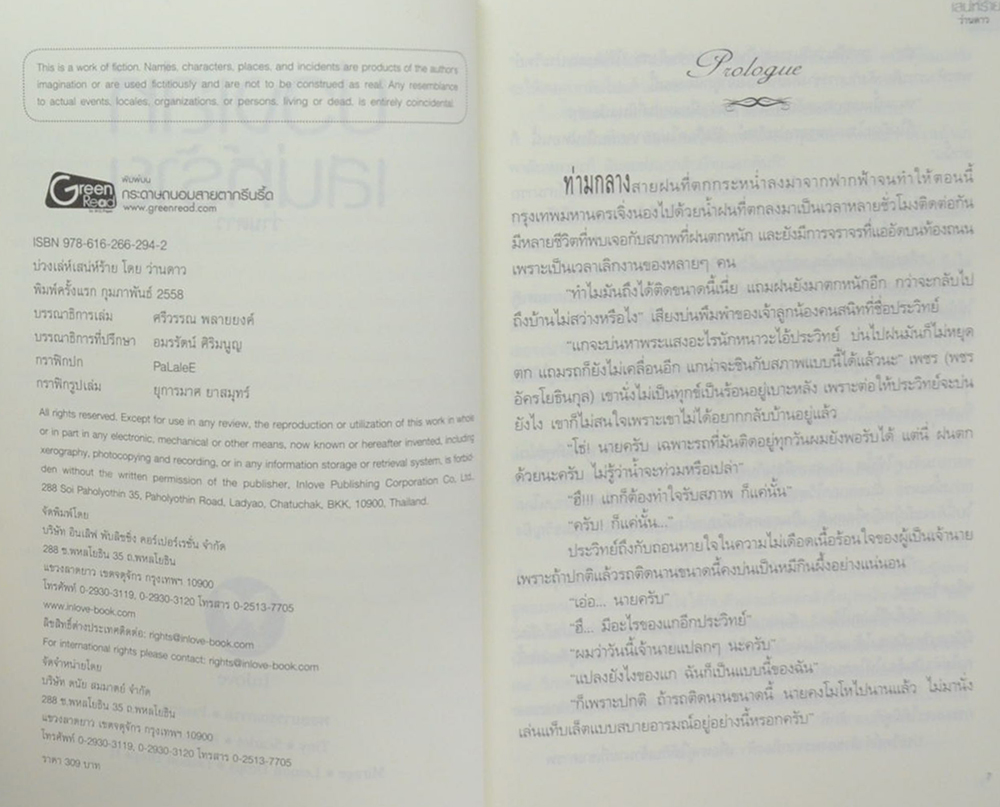 This is a work of fiction. Names, characters, places, and incidents are products of the authors
imagination or are used fictitiously and are not to be construed as real. Any resemblance
to actual events, locales, organizations, or persons, living or dead, is entirely coincidental.
Green Read
พิมพ์บน
กระดาษถนอมสายตากรีนรี้ด
www.greenread.com
ISBN 978-616-266-294-2
บ่วงเล่ห์เสน่ห์ร้าย โดย ว่านดาว
พิมพ์ครั้งแรก กุมภาพันธ์ 2558
บรรณาธิการเล่ม ศรีวรรณ พลายยงค์
บรรณาธิการที่ปรึกษา อมรรัตน์ ศิริมนูญ
กราฟิกปก PaLaleE
กราฟิกรูปเล่ม ยุการมาศ ยาสมุทร์
All rights reserved. Except for use in any review, the reproduction or utilization of this work in whole
or in part in any electronic, mechanical or other means, now known or hereafter invented, including
xerography, photocopying and recording, or in any information storage or retrieval system, is forbid-
den without the written permission of the publisher, Inlove Publishing Corporation Co, Ltd.
288 Soi Paholyothin 35, Paholyothin Road, Ladyao, Chatuchak, BKK, 10900, Thailand.
จัดพิมพ์โดย
บริษัท อินเลิฟ พับลิชชิ่ง คอร์เปอร์เรชั่น จำกัด
288 ซ.พหลโยธิน 35 ถ.พหลโยธิน
แขวงลาดยาว เขตจตุจักร กรุงเทพฯ 10900
โทรศัพท์ 0-2930-3119, 0-2930-3120 โทรสาร 0-2513-7705
www.inlove-book.com
ลิขสิทธิ์ต่างประเทศติดต่อ: rights@inlove-book.com
For international rights please contact: rights@inlove-book.com
จัดจำหน่ายโดย
บริษัท ดนัย สมมาตย์ จำกัด
288 ซ.พหลโยธิน 35 ถ.พหลโยธิน
แขวงลาดยาว เขตจตุจักร กรุงเทพฯ 10900
โทรศัพท์ 0-2930-3119, 0-2930-3120 โทรสาร 0-2513-7705
ราคา 309 บาท
เสน่ห์ร้าย
ว่านดาว
Prologue
ท่ามกลางสายฝนที่ตกกระหน่ำลงมาจากฟากฟ้าจนทำให้ตอนนี้
กรุงเทพมหานครเจิ่งนองไปด้วยน้ำฝนที่ตกลงมาเป็นเวลาหลายชั่วโมงติดต่อกัน
มีหลายชีวิตที่พบเจอกับสภาพที่ฝนตกหนัก และยังมีการจราจรที่แออัดบนท้องถนน
เพราะเป็นเวลาเลิกงานของหลายๆ คน
"ทำไมมันถึงได้ติดขนาดนี้เนี่ย แถมฝนยังมาตกหนักอีก กว่าจะกลับไป
ถึงบ้านไม่สว่างหรือไง" เสียงบ่นพึมพำของเจ้าลูกน้องคนสนิทที่ชื่อประวิทย์
"แกจะบ่นหาพระแสงอะไรนักหนาวะไอ้ประวิทย์ บ่นไปฝนมันก็ไม่หยุด
ตก แถมรถก็ยังไม่เคลื่อนอีก แกน่าจะชินกับสภาพแบบนี้ได้แล้วนะ" เพชร (พชร
อัครโยธินกุล) เขานั่งไม่เป็นทุกข์เป็นร้อนอยู่เบาะหลัง เพราะต่อให้ประวิทย์จะบ่น
ยังไง เขาก็ไม่สนใจเพราะเขาไม่ได้อยากกลับบ้านอยู่แล้ว
"โธ่! นายครับ เฉพาะรถที่มันติดอยู่ทุกวันผมยังพอรับได้ แต่นี่ ฝนตก
ด้วยนะครับ ไม่รู้ว่าน้ำจะท่วมหรือเปล่า"
"ฮื้!!! แกก็ต้องทำใจรับสภาพ ก็แค่นั้น"
"ครับ! ก็แค่นั้น..."
ประวิทย์ถึงกับถอนหายใจในความไม่เดือดเนื้อร้อนใจของผู้เป็นเจ้านาย
เพราะถ้าปกติแล้วรถติดนานขนาดนี้คงบ่นเป็นหมีกินผึ้งอย่างแน่นอน
"เอ่อ... นายครับ"
"ฮื้... มีอะไรของแกอีกประวิทย์"
"ผมว่าวันนี้เจ้านายแปลกๆ นะครับ"
"แปลงยังไงของแก ฉันก็เป็นแบบนี้ของฉัน"
"ก็เพราะปกติ ถ้ารถติดนานขนาดนี้ นายคงโมโหไปนานแล้ว ไม่มานั่ง
เล่นแท็บเล็ตแบบสบายอารมณ์อยู่อย่างนี้หรอกครับ"
7